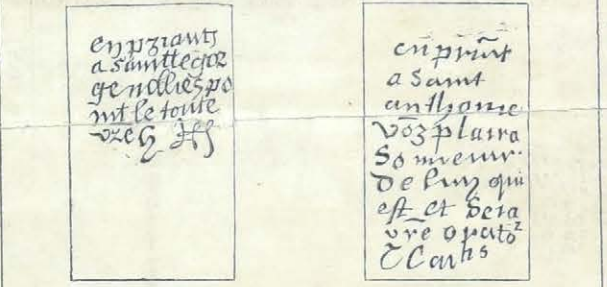 en priants
a saintte gor
ge po
int le toute
vre h
en priãt
a Saint
anthoine
võz plaira
Sovienir
De luy qui
est et Sera
vr̃e orato^r